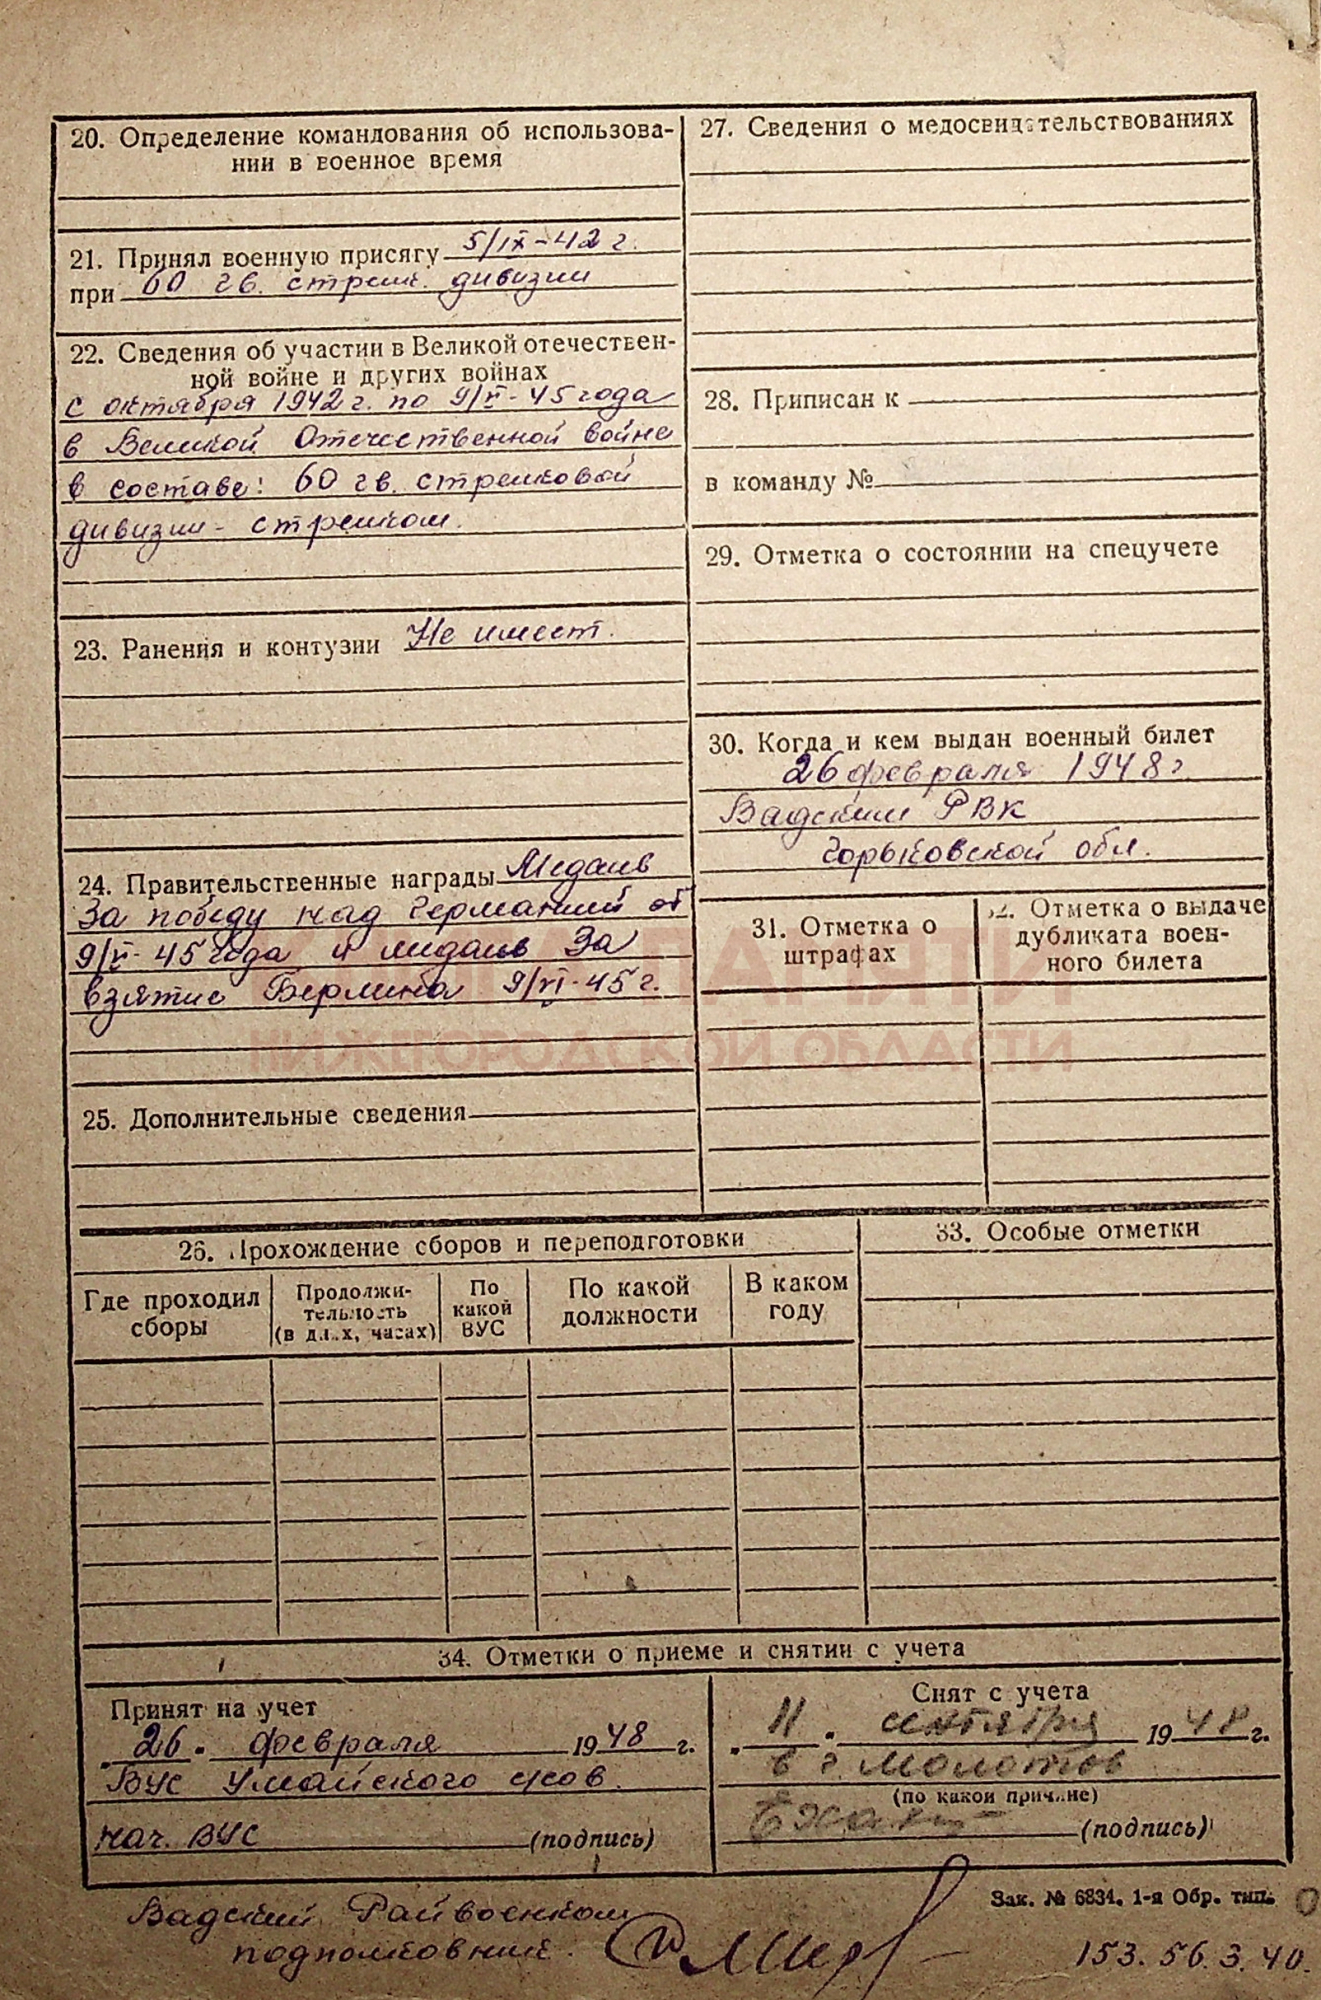 20. Определение командования об использова-
нии в военное время
21. Принял военную присягу 5/IX-42 г.
при 60 гв. стрелк. дивизии
22. Сведения об участии в Великой отечествен-
ной войне и других войнах
с октября 1942 г. по 9/V-45 года
в Великой Отечественной войне
в составе: 60 гв. стрелковой
дивизии - стрелком.
23. Ранения и контузии Не имеет.
24. Правительственные награды Медаль
За победу над Германией от
9/V-45 года и медаль За
взятие Берлина 9/VI-45 г.
25. Дополнительные сведения
27. Сведения о медосвидетельствованиях
28. Приписан к
в команду №
29. Отметка о состоянии на спецучете
30. Когда и кем выдан военный билет
26 февраля 1948 г.
Вадским РВК
Горьковской обл.
31. Отметка о
штрафах
32. Отметка о выдаче
дубликата воен-
ного билета
НИЖЕГОРОДСКОЙ ОБЛАСТИ
26. Прохождение сборов и переподготовки
Где проходил
сборы
Продолжи-
тельность
(в днях, часах)
По
какой
ВУС
По какой
должности
В каком
году
33. Особые отметки
34. Отметки о приеме и снятии с учета
Принят на учет
"26" февраля 1948 г.
ВУС Умайского с/сов.
нач. ВУС (подпись)
Снят с учета
"11" сентября 1948 г.
в г Молотов
(по какой причине)
(подпись)
Вадский Райвоенком
подполковник.
Зак. № 6834. 1-я Обр. тип.
153. 56. 3. 40.